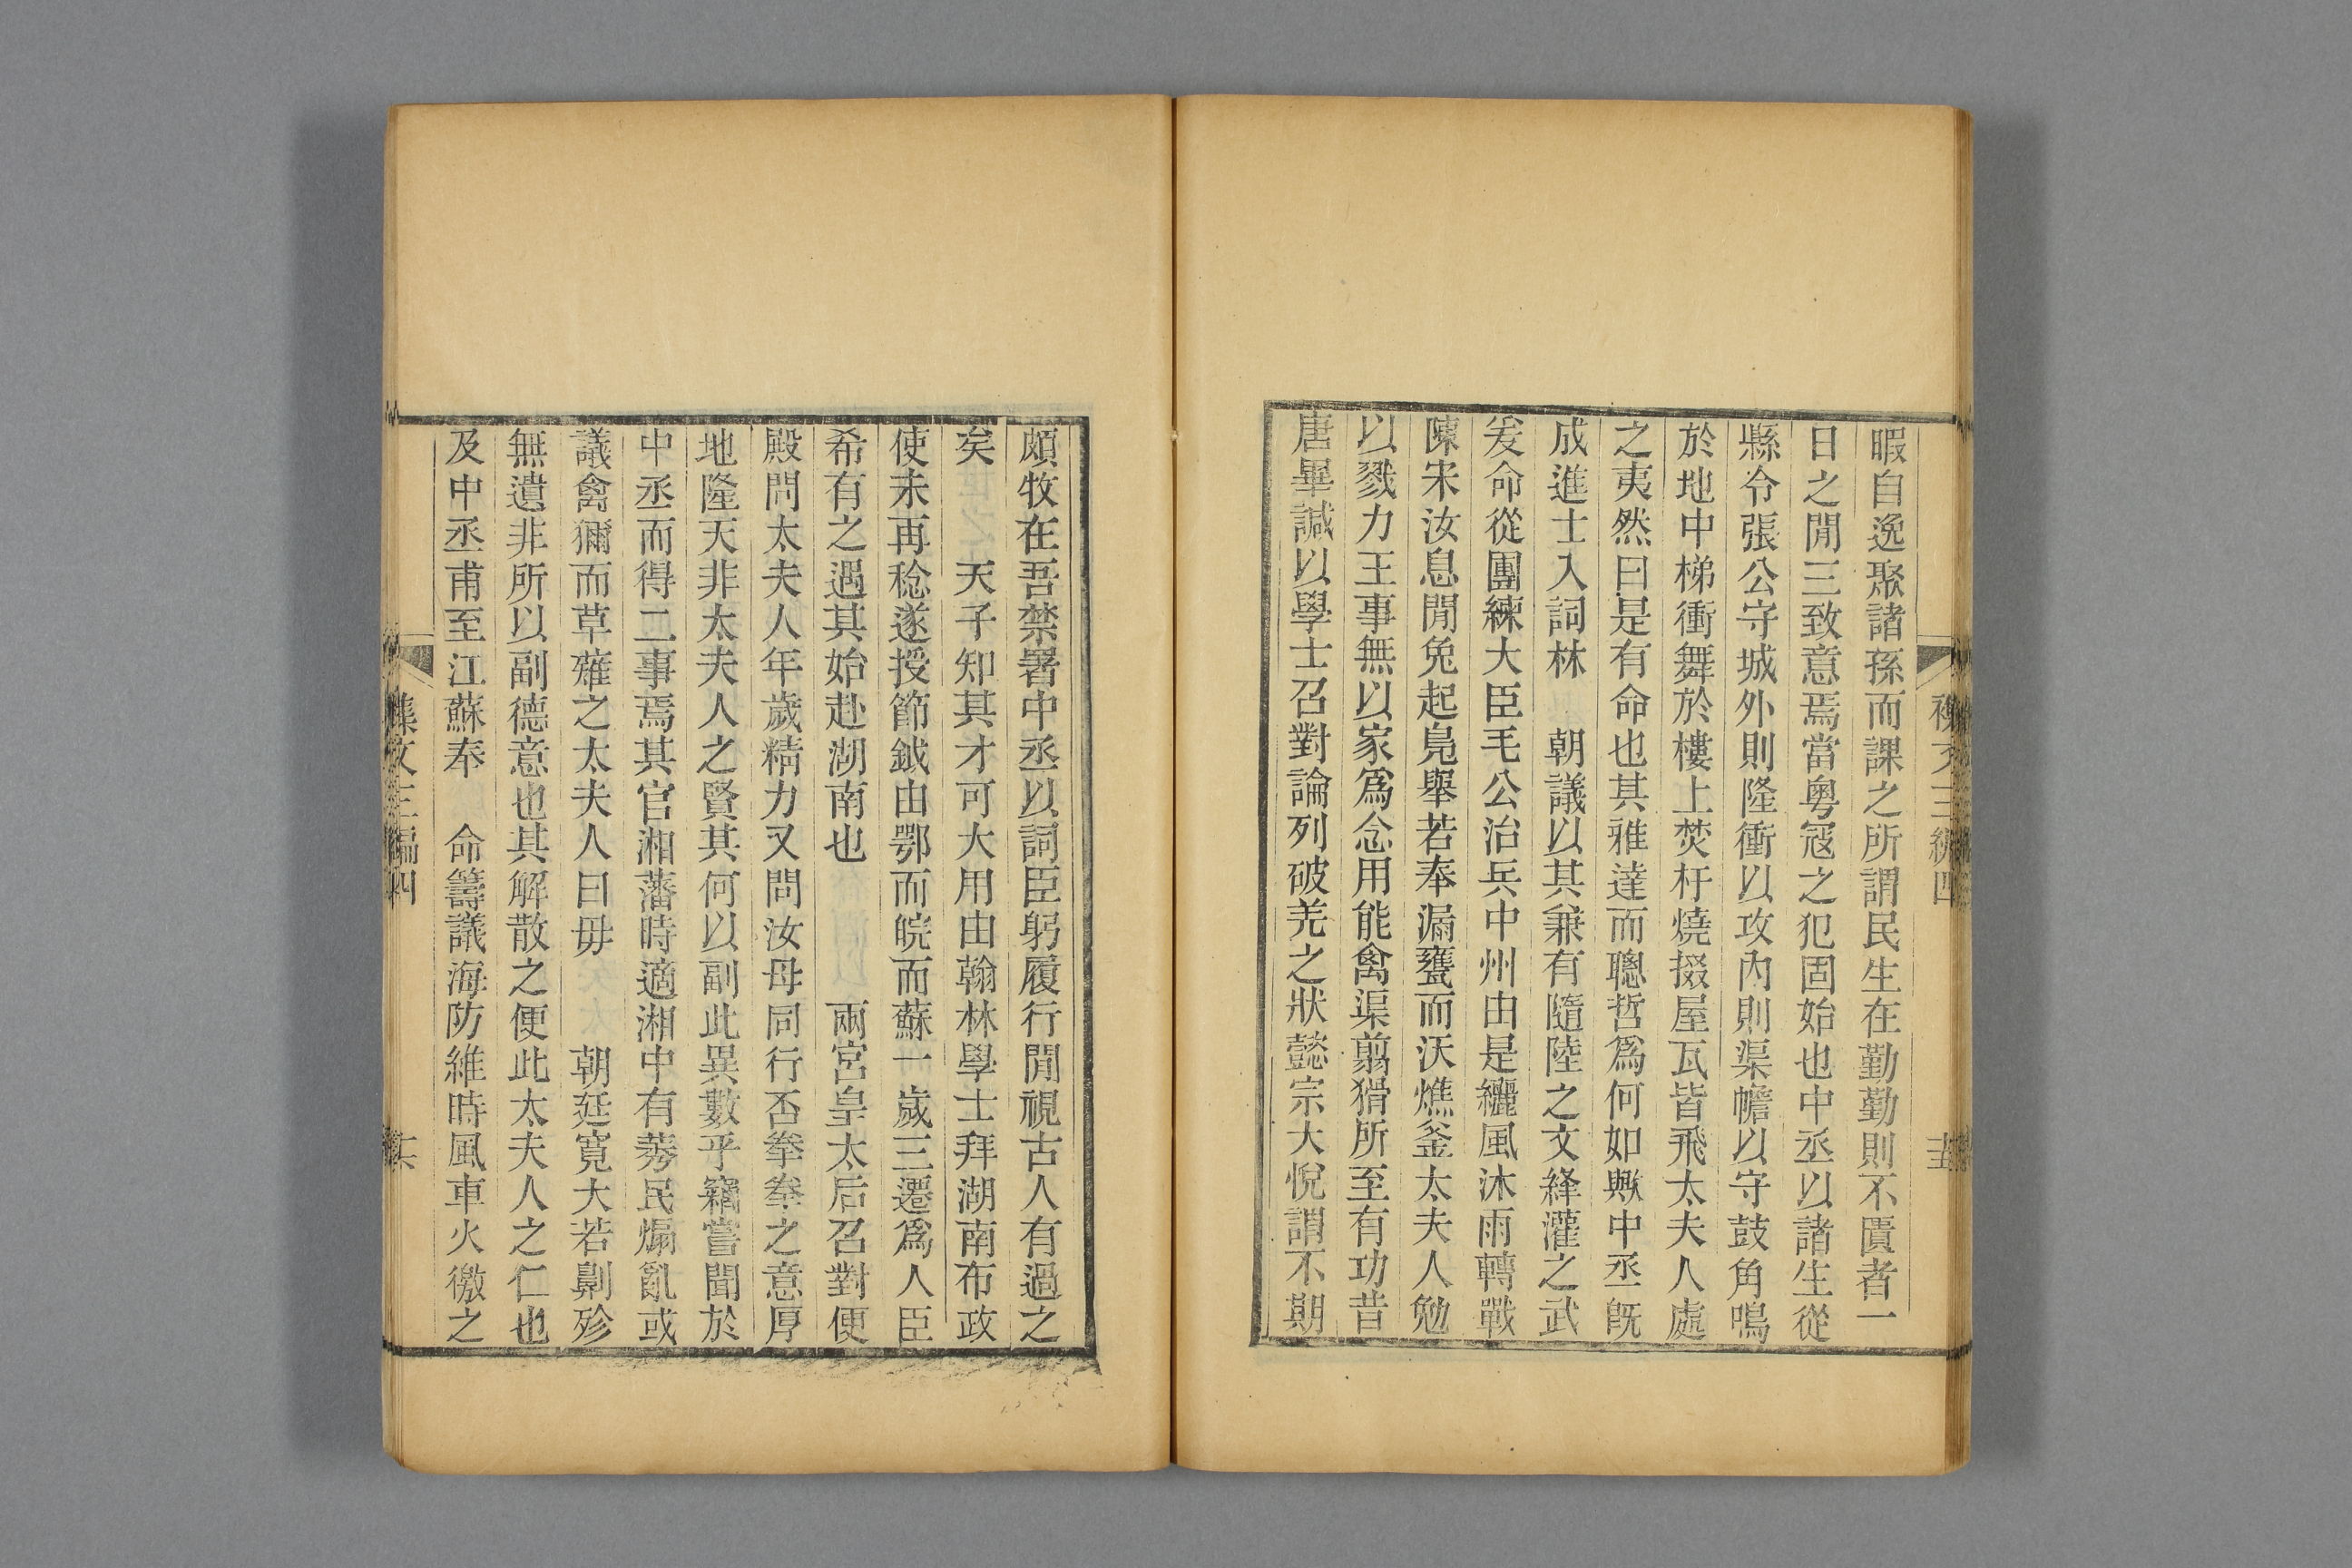 暇自逸聚諸孫而課之所謂民生在勤勤則不匱者一
日之閒三致意焉當粵寇之犯固始也中丞以諸生從
縣令張公守城外則隆衝以攻內則渠幨以守鼓角鳴
於地中梯衝舞於樓上焚杅燒掇屋瓦皆飛太夫人處
之夷然曰是有命也其雅達而聰哲爲何如歟中丞既
成進士入詞林　朝議以其兼有隨陸之文絳灌之武
爰命從團練大臣毛公治兵中州由是纚風沐雨轉戰
陳宋汝息閒兔起鳧舉若奉漏甕而沃燋釜太夫人勉
以戮力王事無以家爲念用能禽渠翦猾所至有功昔
唐畢諴以學士召對論列破羌之狀懿宗大悅謂不期
頗牧在吾禁署中丞以詞臣躬履行閒視古人有過之
矣　天子知其才可大用由翰林學士拜湖南布政
使未再稔遂授節鉞由鄂而皖而蘇一歲三遷爲人臣
希有之遇其始赴湖南也　兩宮皇太后召對便
殿問太夫人年歲精力又問汝母同行否拳拳之意厚
地隆天非太夫人之賢其何以副此異數乎竊嘗聞於
中丞而得二事焉其官湘藩時適湘中有莠民煽亂或
議禽獮而草薙之太夫人曰毋　朝廷寬大若劓殄
無遺非所以副德意也其解散之便此太夫人之仁也
及中丞甫至江蘇奉　命籌議海防維時風車火徼之
集文三編四